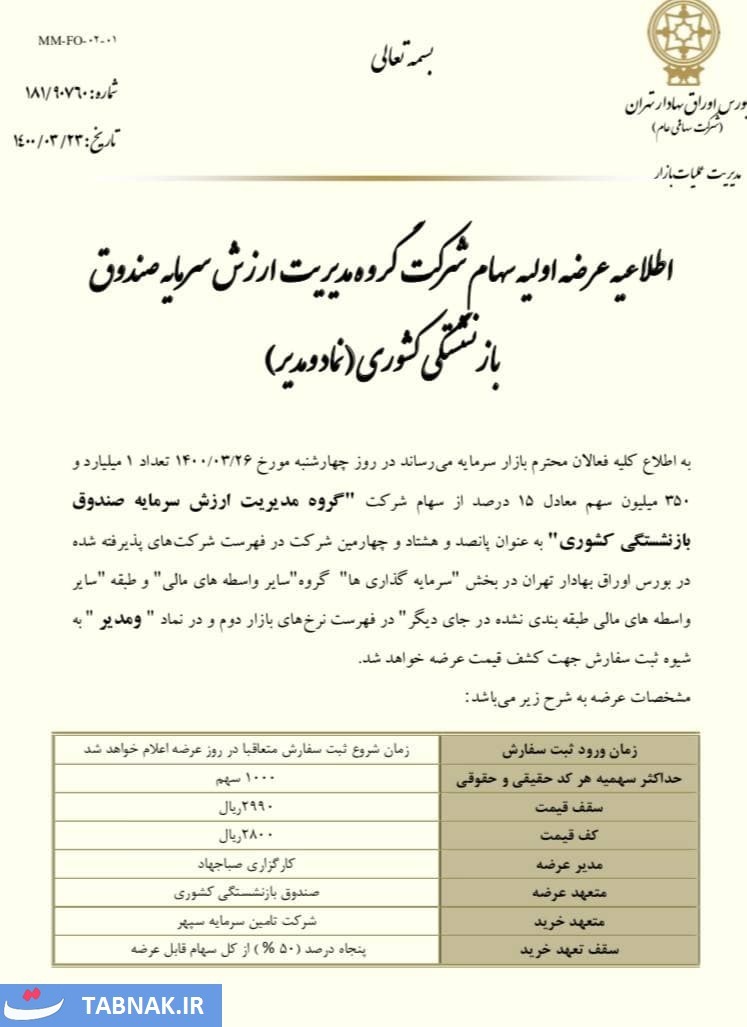 MM-FO-۰۲-۰۱
بسمه تعالی
شماره: ۱۸۱/۹۰۷۶۰
تاریخ: ۱۴۰۰/۰۳/۲۳
بورس اوراق بهادار تهران
(شرکت سهامی عام)
مدیریت عملیات بازار
اطلاعیه عرضه اولیه سهام شرکت گروه مدیریت ارزش سرمایه صندوق
بازنشستگی کشوری (نماد ومدیر)
به اطلاع کلیه فعالان محترم بازار سرمایه می‌رساند در روز چهارشنبه مورخ ۱۴۰۰/۰۳/۲۶ تعداد ۱ میلیارد و
۳۵۰ میلیون سهم معادل ۱۵ درصد از سهام شرکت "گروه مدیریت ارزش سرمایه صندوق
بازنشستگی کشوری" به عنوان پانصد و هشتاد و چهارمین شرکت در فهرست شرکت‌های پذیرفته شده
در بورس اوراق بهادار تهران در بخش "سرمایه گذاری ها" گروه"سایر واسطه های مالی" و طبقه "سایر
واسطه های مالی طبقه بندی نشده در جای دیگر" در فهرست نرخ‌های بازار دوم و در نماد " ومدیر " به
شیوه ثبت سفارش جهت کشف قیمت عرضه خواهد شد.
مشخصات عرضه به شرح زیر می‌باشد:
زمان ورود ثبت سفارش زمان شروع ثبت سفارش متعاقبا در روز عرضه اعلام خواهد شد
حداکثر سهمیه هر کد حقیقی و حقوقی ۱۰۰۰ سهم
سقف قیمت ۲۹۹۰ریال
کف قیمت ۲۸۰۰ریال
مدیر عرضه کارگزاری صباجهاد
متعهد عرضه صندوق بازنشستگی کشوری
متعهد خرید شرکت تامین سرمایه سپهر
سقف تعهد خرید پنجاه درصد (۵۰ %) از کل سهام قابل عرضه
TABNAK.IR